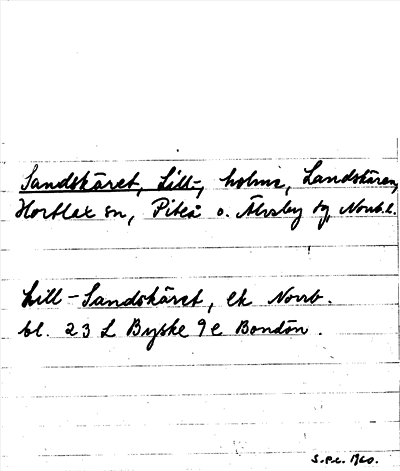 Sandskäret, Lill-, holme, Landskären,
Hortlax sn, Piteå o. Älvsby tg, Norrb. l.
Lill-Sandskäret, ek Norrb.
bl. 23 L Byske 9e Bondön.
S.P.C. 1960.